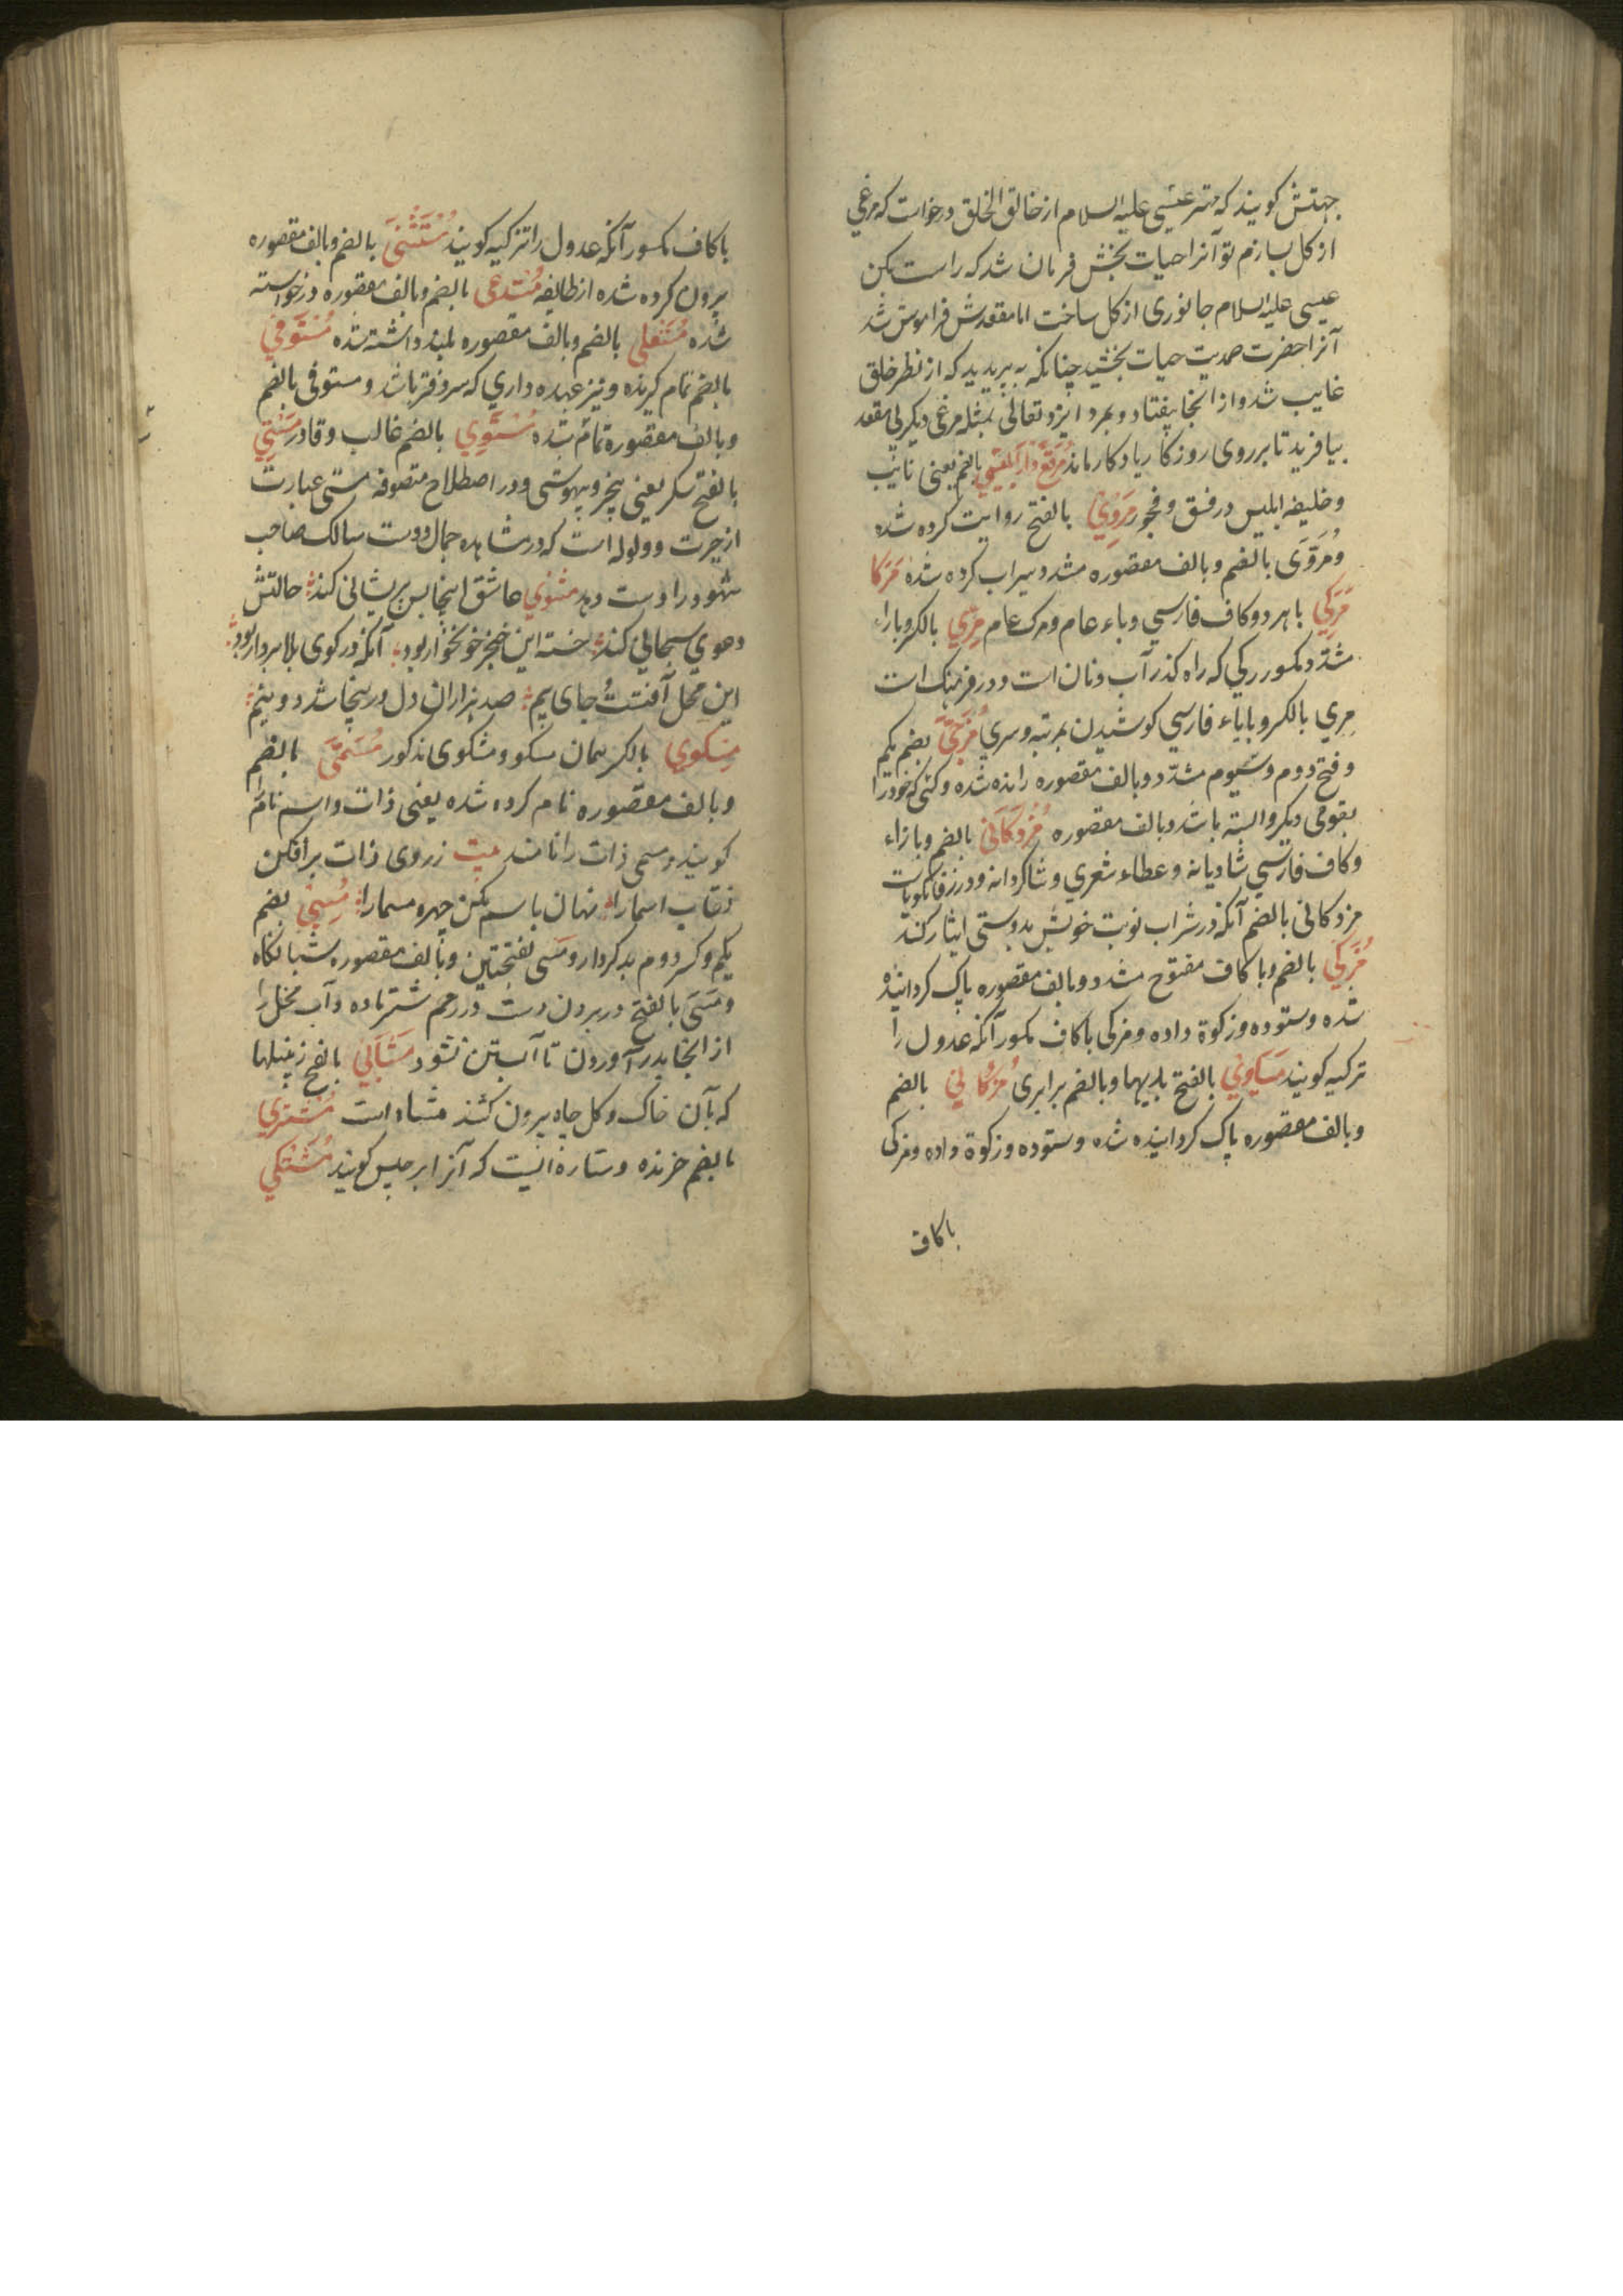 جهتش کویند که مهتر عیسی علیه السلام از خالق الخلق درخواست که مرغی
از کل بسازم تو آنرا حیات بخش فرمان شد که راست بکن
عیسی علیه السلام جانوری از کل ساخت اما مقعدش فراموش شد
آنرا حضرت صمدیت حیات بخشید چنانکه بپرید که از نظر خلق
غایب شد و از انجا بیفتاد و بمرد ایزد تعالی بمثله مرغی دیکر بی مقعد
بیافرید تا بر روی روزکار یادکار ماند ابلیسی بالضم یعنی نایب
و خلیفه ابلیس در فسق و فجور مروی بالفتح روایت کرده شده
و مروی بالضم و بالف مقصوره مشدد سیراب کرده شده مرکا
مرکی با هر دو کاف فارسی وباء عام و مرک عام مری بالکر و باراء
مشدد مکسور رکی که راه کذر آب و نان است و در فرهنک است
مری بالکسر و بایاء فارسی کوشیدن بمرتبه و سری مزجی بضم یکم
و فتح دوم و سیوم مشدد و بالف مقصوره رانده شده و کسی که خود را
بقومی دیکر وابسته باشد و بالف مقصوره مزدکانی بالضم و بازاء
و کاف فارسی شادیانه و عطاء شعری و شاکردانه و در زفانکویاست
مزدکانی بالضم آنکه در شراب نوبت خویش بدوستی ایثار کند
مزکی بالضم و با کاف مفتوح مشدد و بالف مقصوره پاک کردانیده
شده و ستوده و زکوة داده و مزکی باکاف مکسور آنکه عدول را
تزکیه کویند مساوی بالفتح بدیها و بالضم برابری بالضم
و بالف مقصوره پاک کردانیده شده و ستوده و زکوة داده و مزکی
باکاف
باکاف مکسور آنکه عدول را تزکیه کویند مستثنی بالضم و بالف مقصوره
بیرون کرده شده از طایفه مستدعی بالضم و بالف مقصوره درخواسته
شده مستعلی بالضم و بالف مقصوره بلند داشته شده مستوفی
بالضم تمام کیرنده و نیز عهده داری که سردفتر باشد و مستوفی بالضم
و بالف مقصوره تمام شده مستوی بالضم غالب و قادر مستی
بالفتح سکر یعنی بیخبر و بیهوشی و در اصطلاح متصوفه مستی عبارت
از حیرت و ولوله است که در مشاهده جمال دوست سالک صاحب
شهود را دست دهد مثنوی عاشق اینجا بس پریشانی کند حالتش
دعوی سبحانی کند خسته این خنجر خونخوار بود آنکه در کوی بلا سردار بود
این محل آفتست جای بیم صد هزاران دل در ینجا شد دو نیم
مسکوی بالکر همان مسکو و مشکوی مذکور مسمی بالضم
و بالف مقصوره نام کرده شده یعنی ذات و اسم نام
کویند و مسمی ذات را نامند بیت زروی ذات بر افکن
نقاب اسما را نهان باسم مکن چهره مسما را مسی بضم
یکم و کسر دوم بدکردار و مسی بفتحتین و بالف مقصوره شبانکاه
و مسی بالفتح در بردن دست در رحم شتر ماده و آب فحل را
از انجا بدر آوردن تا آبستن نشود مشابی بالفتح زنبیلها
که بآن خاک و کل چاه بیرون کشند مشاد است مشتری
بالضم خرنده و ستاره ایست که آنرا برجیس کویند مشتکی